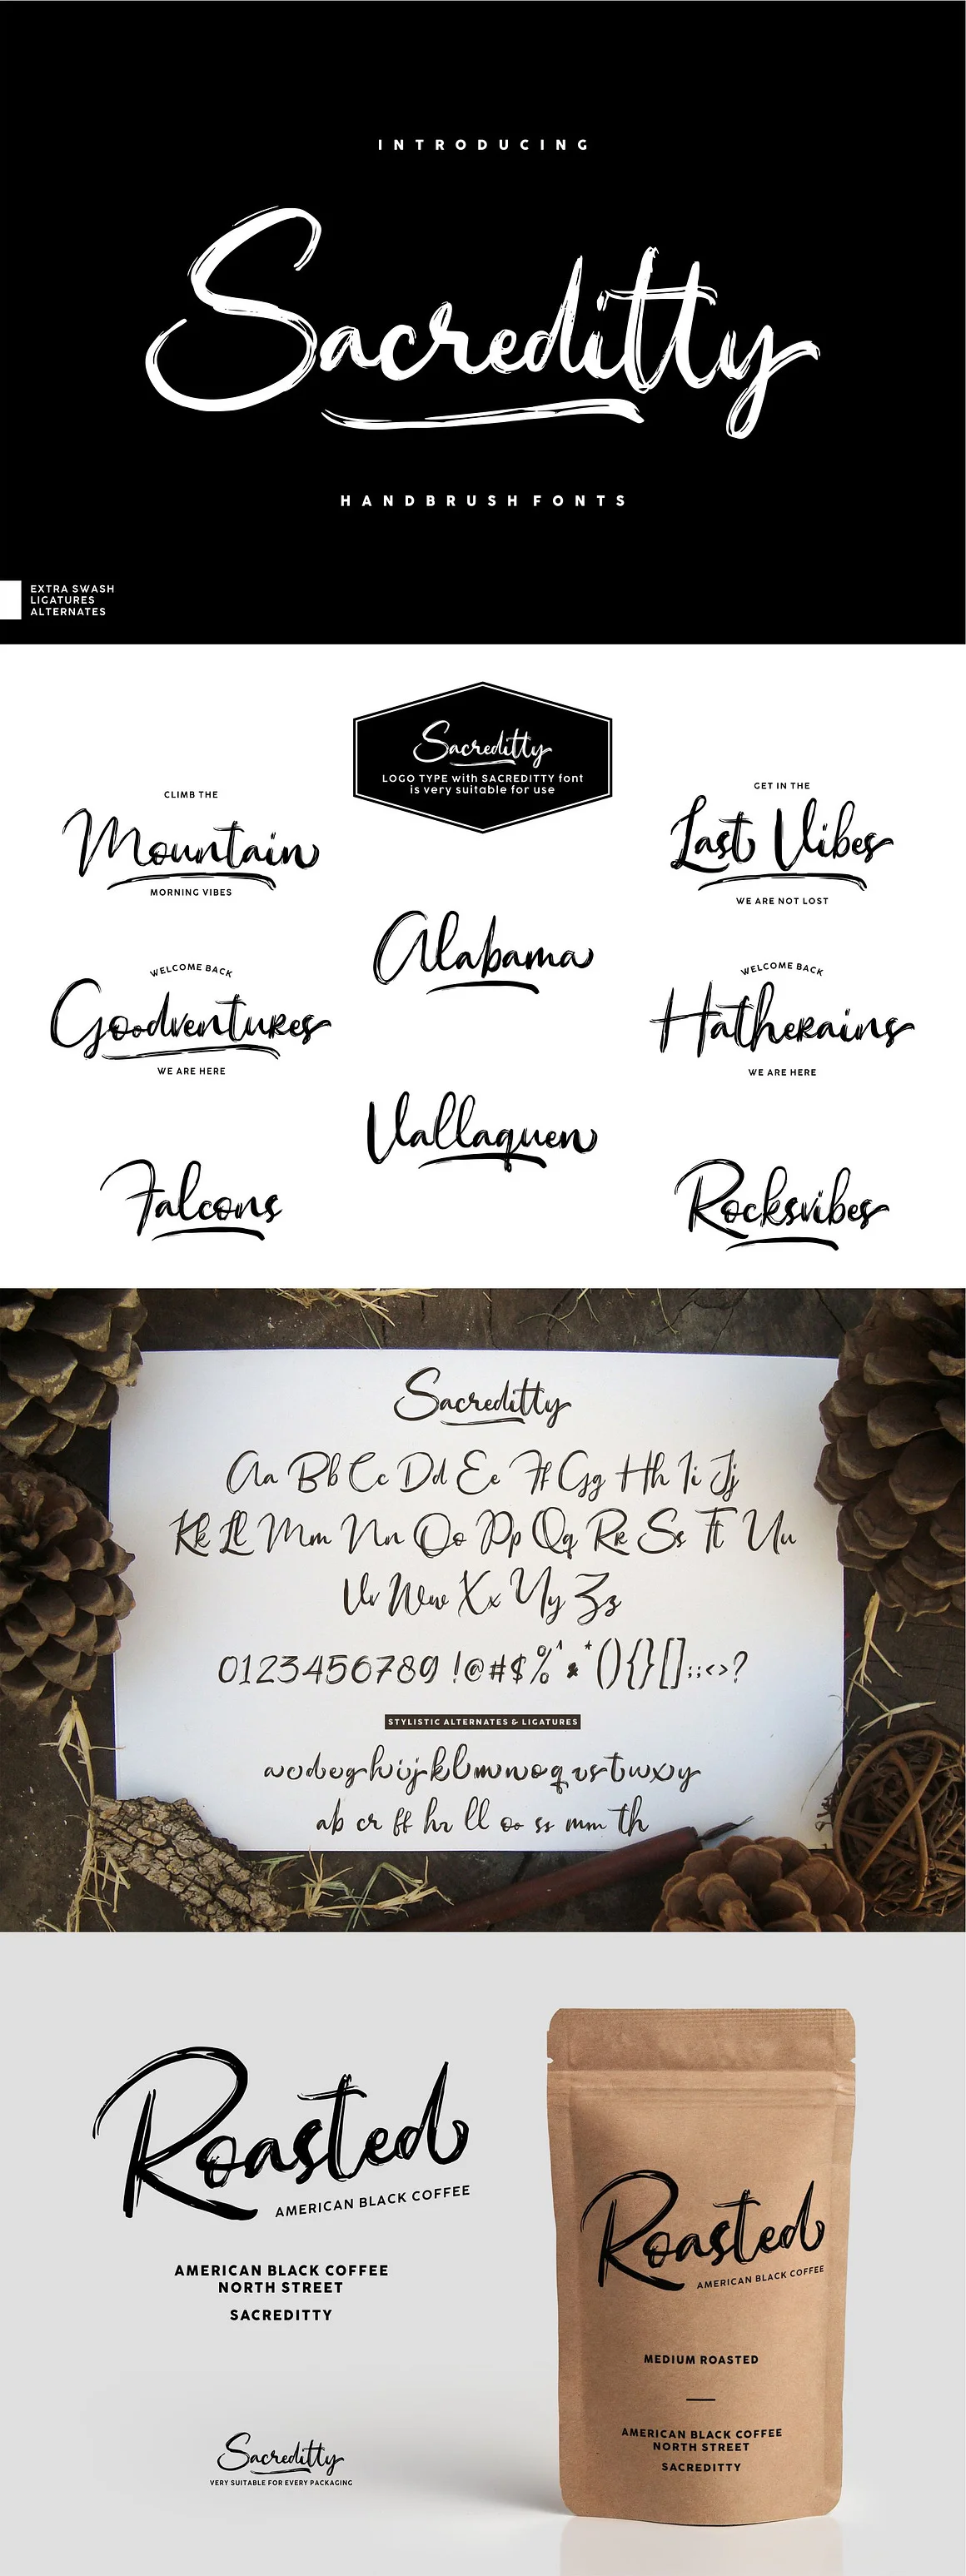 INTRODUCING
Sacreditty
HANDBRUSH FONTS
EXTRA SWASH
LIGATURES
ALTERNATES
Sacreditty
LOGO TYPE with SACREDITTY font
is very suitable for use
CLIMB THE
Mountain
MORNING VIBES
GET IN THE
Last Vibes
WE ARE NOT LOST
Alabama
WELCOME BACK
Goodventures
WE ARE HERE
WELCOME BACK
Hatherains
WE ARE HERE
Vallaquen
Falcons
Rocksvibes
Sacreditty
Aa Bb Cc Dd Ee Ff Gg Hh Ii Jj
Kk Ll Mm Nn Oo Pp Qq Rr Ss Tt Uu
Vv Ww Xx Yy Zz
0123456789 !@#$%^&*(){}[]:;<>?
STYLISTIC ALTERNATES & LIGATURES
ab cr ff hr ll oo ss mm th
Roasted
AMERICAN BLACK COFFEE
AMERICAN BLACK COFFEE
NORTH STREET
SACREDITTY
Sacreditty
VERY SUITABLE FOR EVERY PACKAGING
Roasted
AMERICAN BLACK COFFEE
MEDIUM ROASTED
AMERICAN BLACK COFFEE
NORTH STREET
SACREDITTY